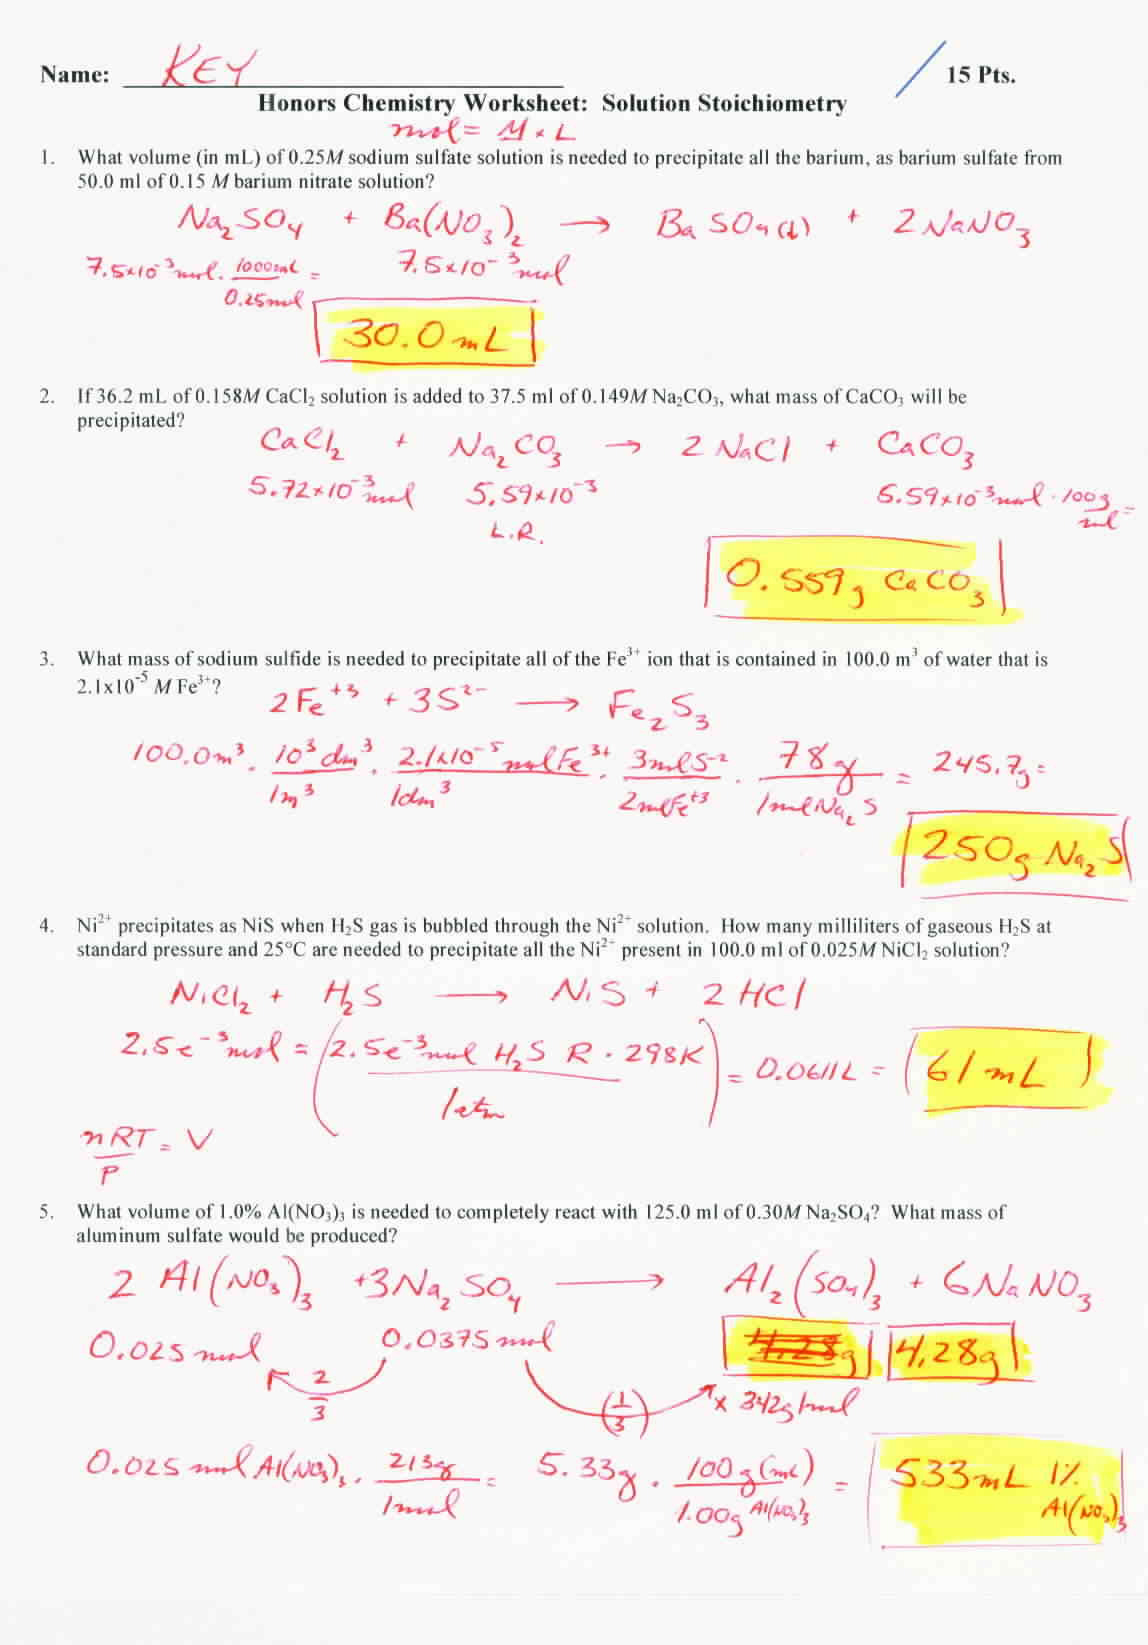 Name: KEY 15 Pts.
Honors Chemistry Worksheet: Solution Stoichiometry
mol = M × L
1. What volume (in mL) of 0.25M sodium sulfate solution is needed to precipitate all the barium, as barium sulfate from
50.0 ml of 0.15 M barium nitrate solution?
Na₂SO₄ + Ba(NO₃)₂ → BaSO₄(↓) + 2NaNO₃
7.5×10⁻³mol · 1000mL/0.25mol = 7.5×10⁻³ mol
30.0 mL
2. If 36.2 mL of 0.158M CaCl₂ solution is added to 37.5 ml of 0.149M Na₂CO₃, what mass of CaCO₃ will be
precipitated?
CaCl₂ + Na₂CO₃ → 2 NaCl + CaCO₃
5.72×10⁻³mol 5.59×10⁻³ 5.59×10⁻³mol · 100g/mol =
L.R.
0.559g CaCO₃
3. What mass of sodium sulfide is needed to precipitate all of the Fe³⁺ ion that is contained in 100.0 m³ of water that is
2.1x10⁻⁵ M Fe³⁺?
2Fe⁺³ + 3S²⁻ → Fe₂S₃
100.0m³ · 10³dm³/1m³ · 2.1×10⁻⁵molFe³⁺/1dm³ · 3molS⁻²/2molFe⁺³ · 78g/1molNa₂S = 245.7g =
250g Na₂S
4. Ni²⁺ precipitates as NiS when H₂S gas is bubbled through the Ni²⁺ solution. How many milliliters of gaseous H₂S at
standard pressure and 25°C are needed to precipitate all the Ni²⁺ present in 100.0 ml of 0.025M NiCl₂ solution?
NiCl₂ + H₂S → NiS + 2 HCl
2.5e⁻³mol = (2.5e⁻³mol H₂S R · 298K/1atm) = 0.0611L = 61 mL
nRT/P = V
5. What volume of 1.0% Al(NO₃)₃ is needed to completely react with 125.0 ml of 0.30M Na₂SO₄? What mass of
aluminum sulfate would be produced?
2 Al(NO₃)₃ + 3Na₂SO₄ → Al₂(SO₄)₃ + 6NaNO₃
0.025 mol 0.0375 mol 4.28g 4.28g
2/3 (1/3) × 342g/mol
0.025 mol Al(NO₃)₃ · 213g/1mol = 5.33g · 100g(mL)/1.00g Al(NO₃)₃ = 533mL 1% Al(NO₃)₃